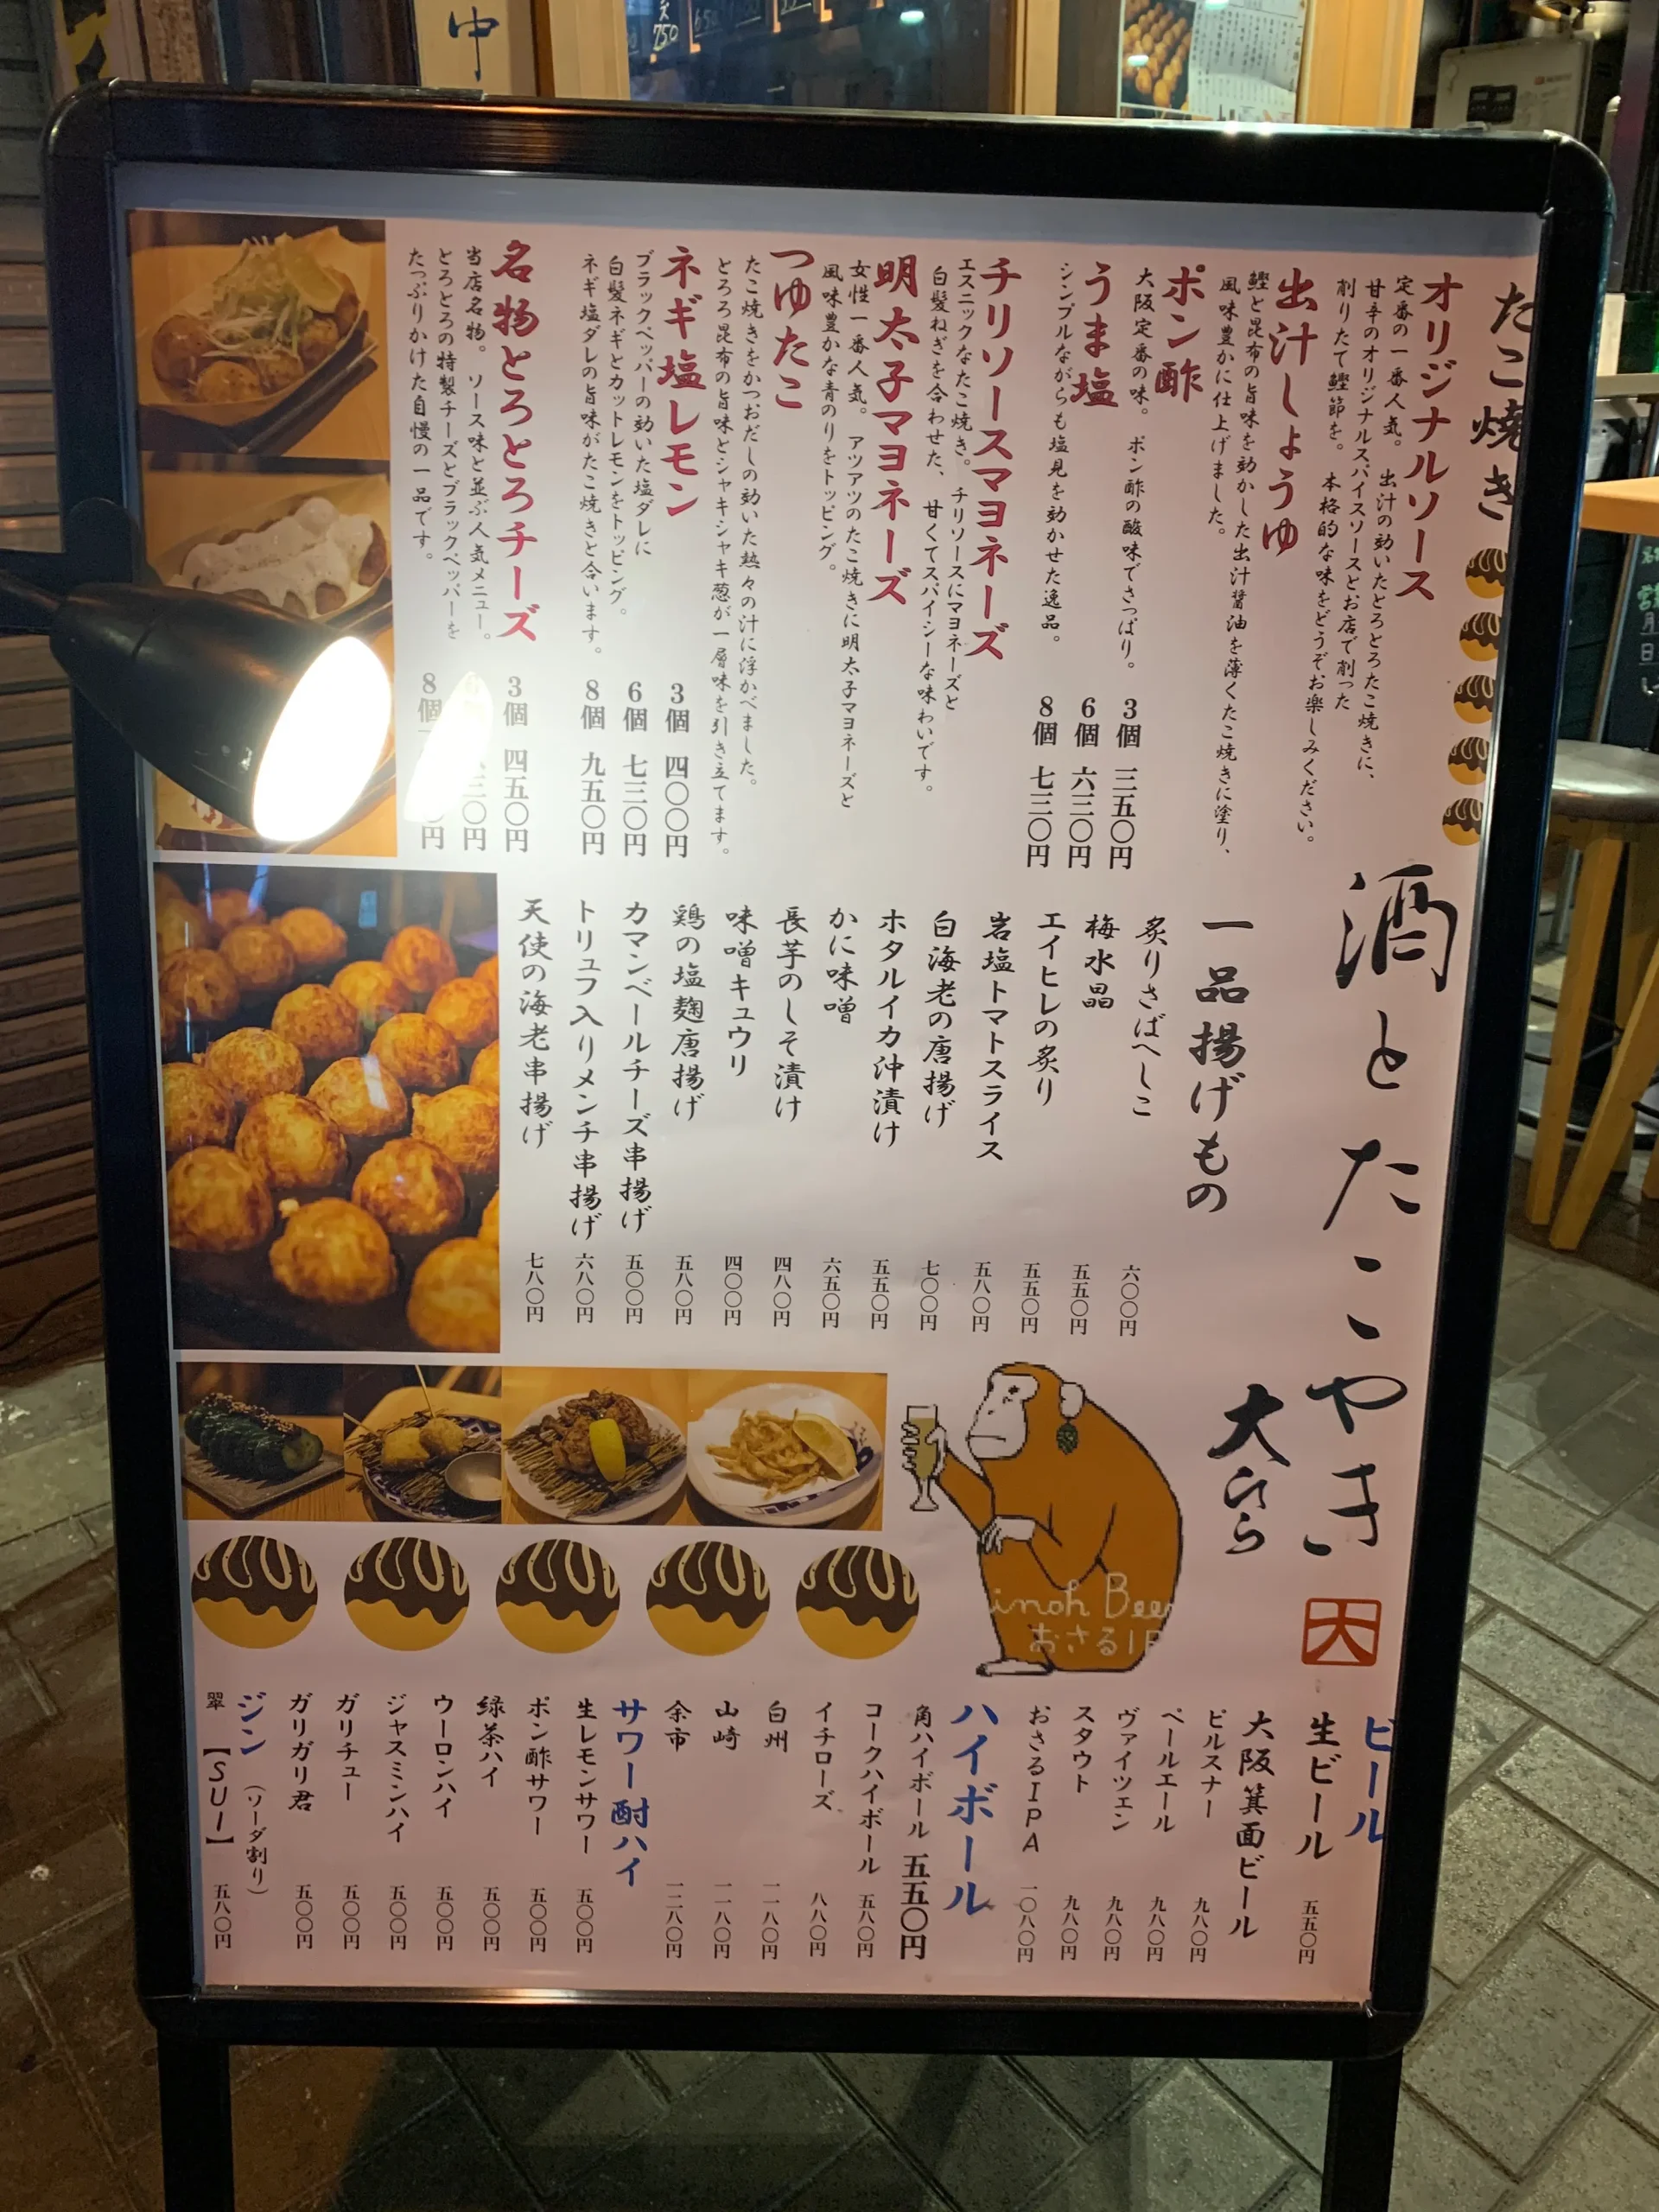 たこ焼き
オリジナルソース
定番の一番人気。 出汁の効いたとろとろたこ焼きに、
甘辛のオリジナルスパイスソースとお店で削った
削りたて鰹節を。 本格的な味をどうぞお楽しみください。
出汁しょうゆ
鰹と昆布の旨味を効かした出汁醤油を薄くたこ焼きに塗り、
風味豊かに仕上げました。
ポン酢
大阪定番の味。 ポン酢の酸味でさっぱり。
うま塩
シンプルながらも塩見を効かせた逸品。
3個 三五〇円
6個 六三〇円
8個 七三〇円
チリソースマヨネーズ
エスニックなたこ焼き。チリソースにマヨネーズと
白髪ねぎを合わせた、 甘くてスパイシーな味わいです。
明太子マヨネーズ
女性一番人気。 アツアツのたこ焼きに明太子マヨネーズと
風味豊かな青のりをトッピング。
つゆたこ
たこ焼きをかつおだしの効いた熱々の汁に浮かべました。
とろろ昆布の旨味とシャキシャキ葱が一層味を引き立てます。
ネギ塩レモン
ブラックペッパーの効いた塩ダレに
白髪ネギとカットレモンをトッピング。
ネギ塩ダレの旨味がたこ焼きと合います。
3個 四〇〇円
6個 七三〇円
8個 九五〇円
名物とろとろチーズ
当店名物。 ソース味と並ぶ人気メニュー。
とろとろの特製チーズとブラックペッパーを
たっぷりかけた自慢の一品です。
3個 四五〇円
三〇円
8個
円
酒とたこやき
大ひら
大
一品揚げもの
炙りさばへしこ 六〇〇円
梅水晶 五五〇円
エイヒレの炙り 五五〇円
岩塩トマトスライス 五八〇円
白海老の唐揚げ 七〇〇円
ホタルイカ沖漬け 五五〇円
かに味噌 六五〇円
長芋のしそ漬け 四八〇円
味噌キュウリ 四〇〇円
鶏の塩麹唐揚げ 五八〇円
カマンベールチーズ串揚げ 五〇〇円
トリュフ入りメンチ串揚げ 六八〇円
天使の海老串揚げ 七八〇円
inoh Beer
おさるIP
ビール
生ビール 五五〇円
大阪箕面ビール
ピルスナー 九八〇円
ペールエール 九八〇円
ヴァイツェン 九八〇円
スタウト 九八〇円
おさるIPA 一〇八〇円
ハイボール
角ハイボール 五五〇円
コークハイボール 五八〇円
イチローズ 八八〇円
白州 一一八〇円
山崎 一一八〇円
余市 一二八〇円
サワー酎ハイ
生レモンサワー 五〇〇円
ポン酢サワー 五〇〇円
緑茶ハイ 五〇〇円
ウーロンハイ 五〇〇円
ジャスミンハイ 五〇〇円
ガリチュー 五〇〇円
ガリガリ君 五〇〇円
ジン （ソーダ割り）
翠 【SUI】 五八〇円
中
750
650